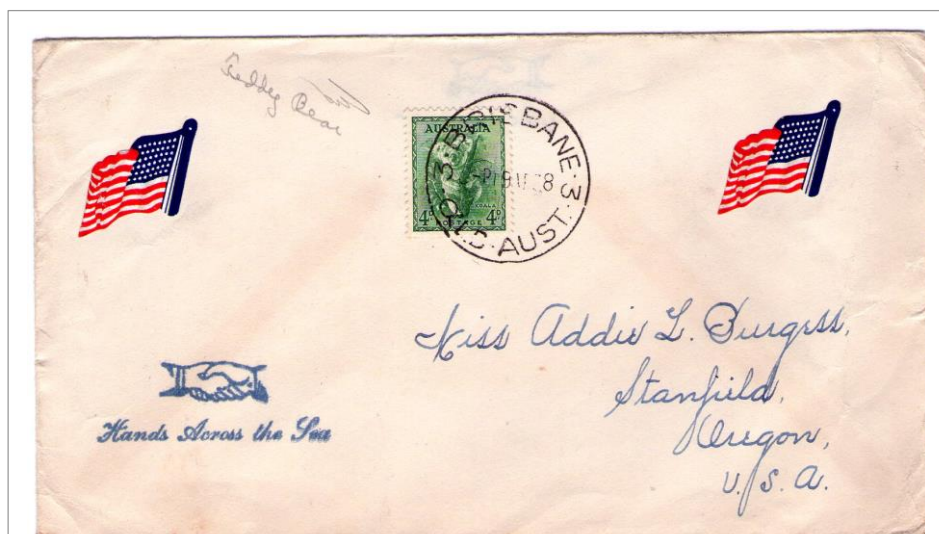 Teddy Bear
AUSTRALIA
KOALA
4D 4D
POSTAGE
3·BRISBANE·3
QLD·AUST.
Miss Addie L. Burgess,
Stanfield,
Oregon,
U.S.A.
Hands Across the Sea